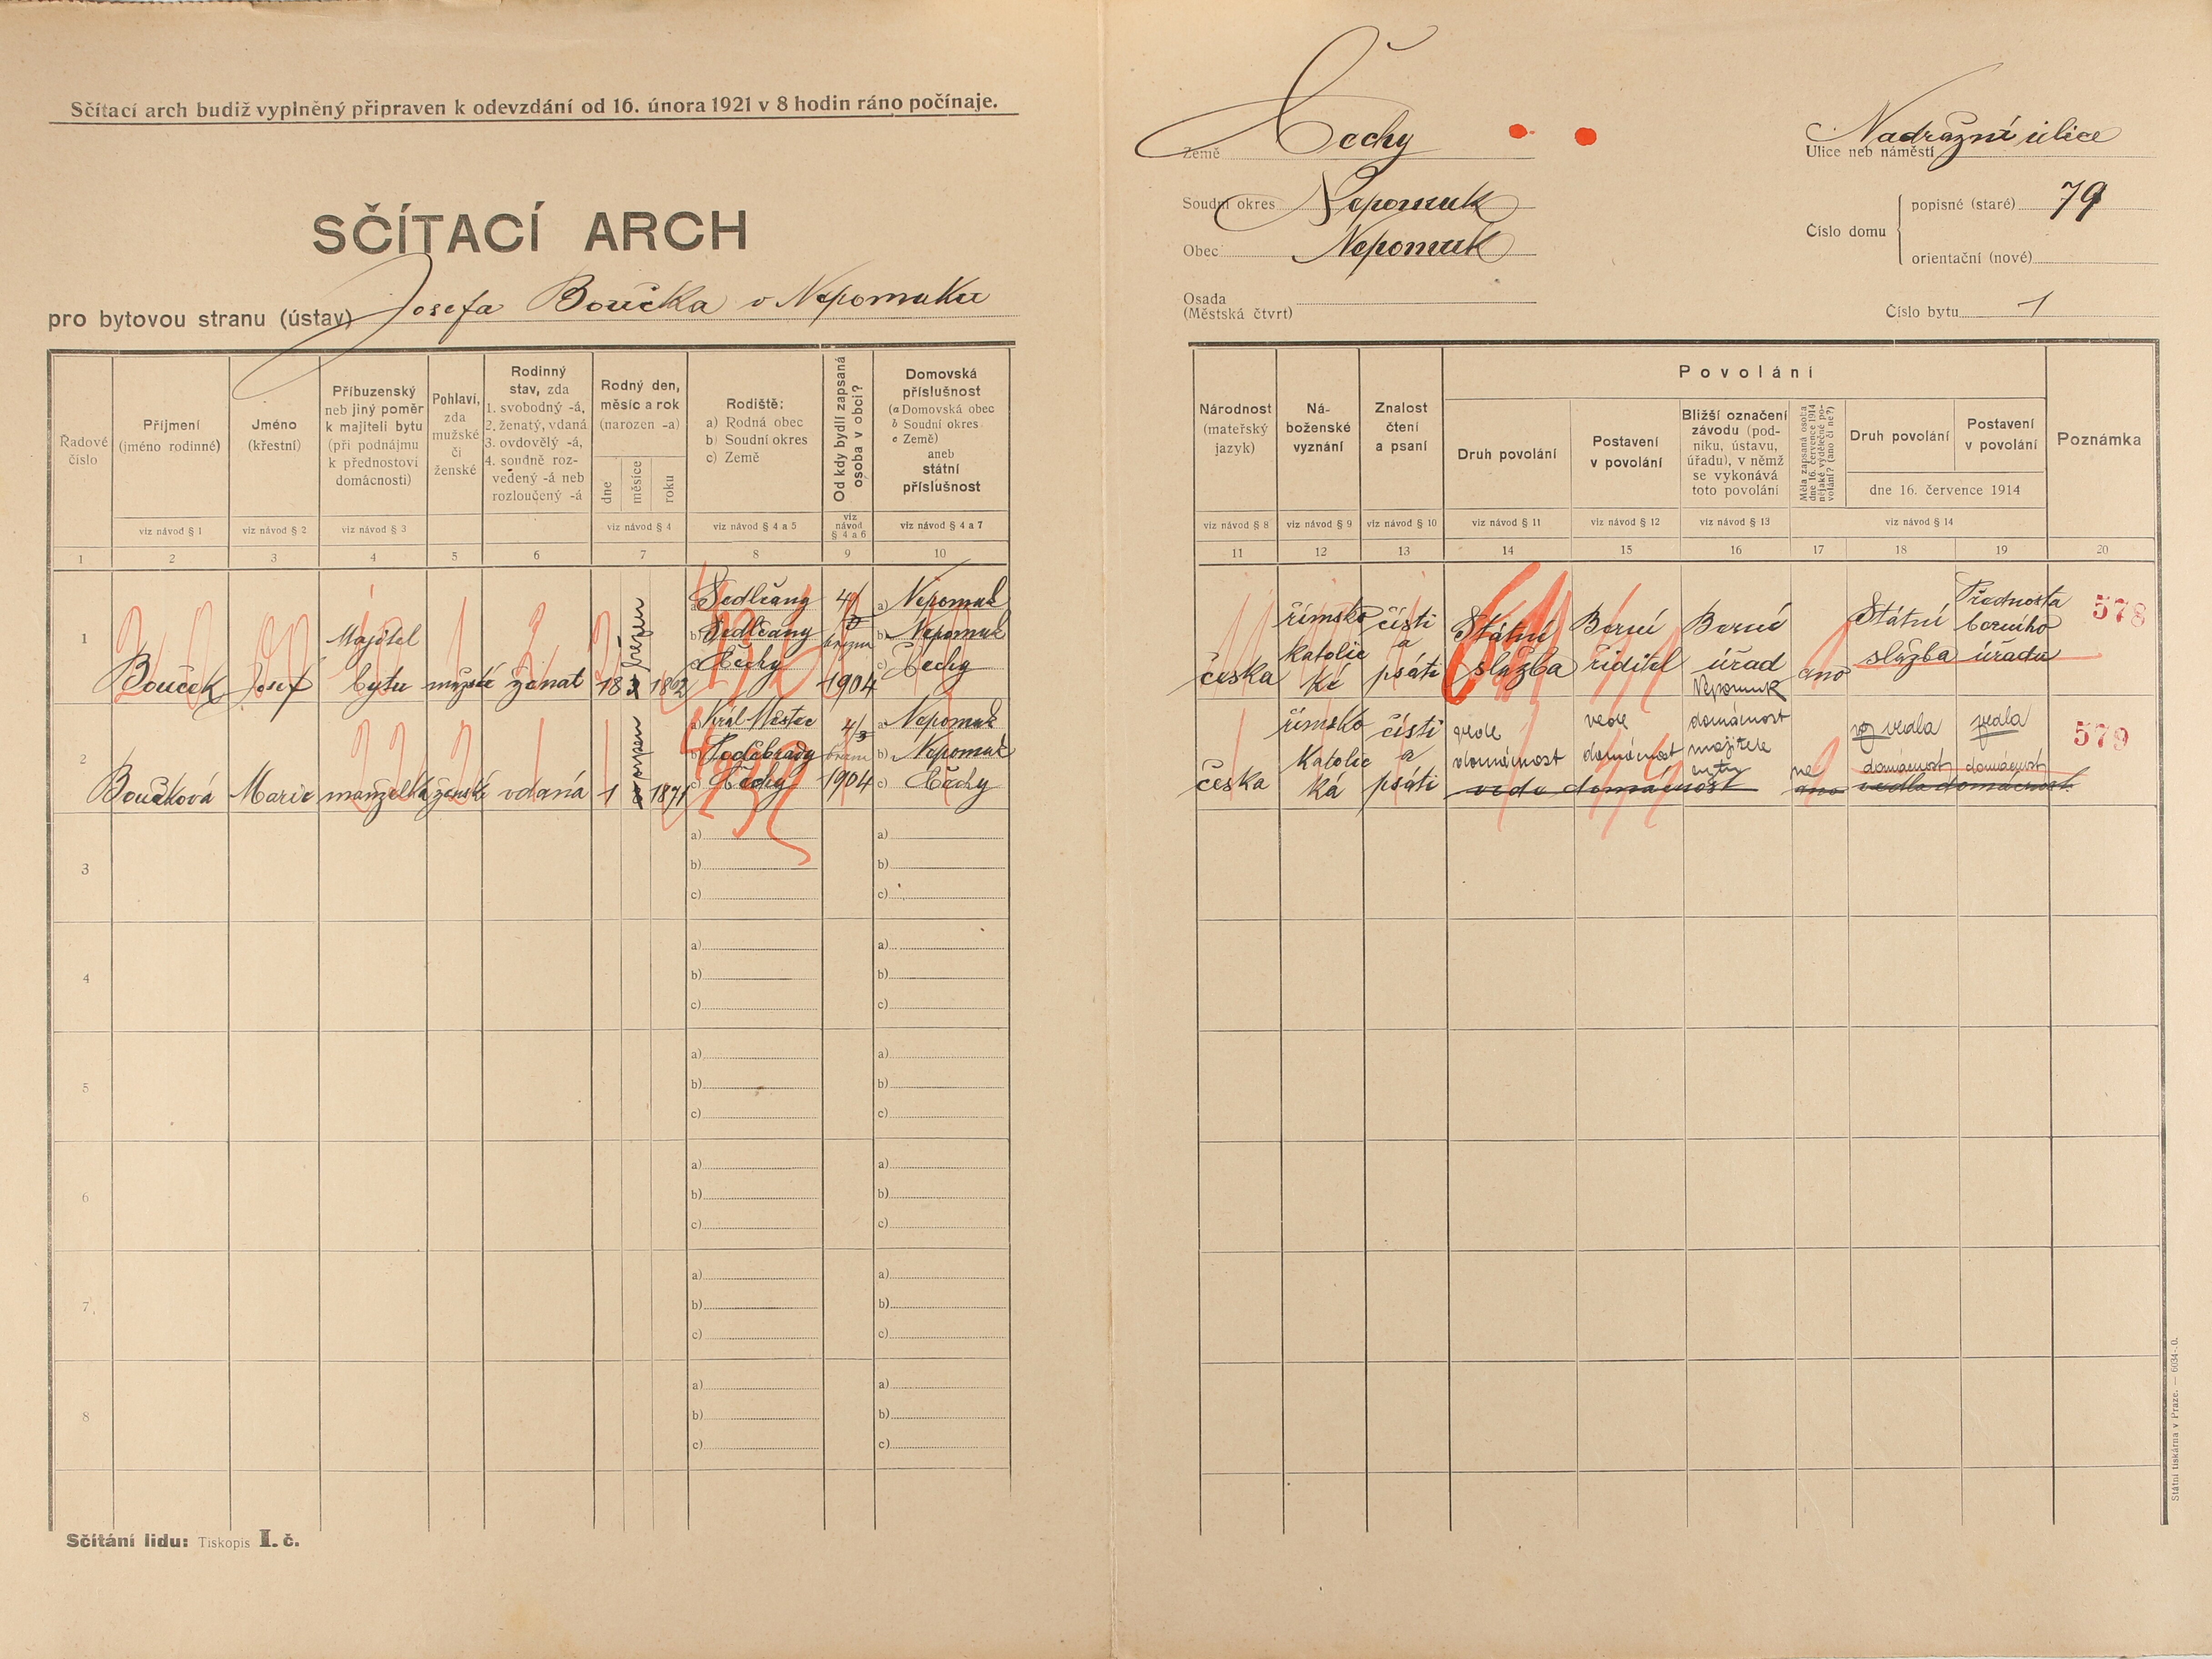 Sčítací arch budiž vyplněný připraven k odevzdání od 16. února 1921 v 8 hodin ráno počínaje.
SČÍTACÍ ARCH
pro bytovou stranu (ústav) Josefa Boučka v Nepomuku
Země Čechy
Soudní okres Nepomuk
Obec Nepomuk
Osada
(Městská čtvrt)
Nádražní ulice
Ulice neb náměstí
Číslo domu
popisné (staré) 79
orientační (nové)
Číslo bytu 1
Řadové
číslo
Příjmení
(jméno rodinné)
Jméno
(křestní)
Příbuzenský
neb jiný poměr
k majiteli bytu
(při podnájmu
k přednostovi
domácnosti)
Pohlaví,
zda
mužské
či
ženské
Rodinný
stav, zda
1. svobodný -á,
2. ženatý, vdaná
3. ovdovělý -á,
4. soudně roz-
vedený -á neb
rozloučený -á
Rodný den,
měsíc a rok
(narozen -a)
dne
měsíce
roku
Rodiště:
a) Rodná obec
b) Soudní okres
c) Země
Od kdy bydlí zapsaná
osoba v obci?
Domovská
příslušnost
(a Domovská obec
b Soudní okres
c Země)
aneb
státní
příslušnost
viz návod § 1
viz návod § 2
viz návod § 3
viz návod § 4
viz návod § 4 a 5
viz
návod
§ 4 a 6
viz návod § 4 a 7
1 2 3 4 5 6 7 8 9 10
Národnost
(mateřský
jazyk)
Ná-
boženské
vyznání
Znalost
čtení
a psaní
Povolání
Druh povolání
Postavení
v povolání
Bližší označení
závodu (pod-
niku, ústavu,
úřadu), v němž
se vykonává
toto povolání
Měla zapsaná osoba
dne 16. července 1914
nějaké výdělečné po-
volání? (ano či ne?)
Druh povolání
Postavení
v povolání
dne 16. července 1914
Poznámka
viz návod § 8
viz návod § 9
viz návod § 10
viz návod § 11
viz návod § 12
viz návod § 13
viz návod § 14
11 12 13 14 15 16 17 18 19 20
1
Bouček
Josef
Majitel
bytu
mužské
ženat
18
březen
1862
a) Sedlčany
b) Sedlčany
c) Čechy
března
1904
a) Nepomuk
b) Nepomuk
c) Čechy
česka
římsko
katolic
ké
čísti
a
psáti
Státní
služba
Berní
řiditel
Berní
úřad
Nepomuk
ano
Státní
služba
Přednosta
berního
úřadu
578
2
Boučková
Marie
manželka
ženské
vdaná
1
srpen
1871
a) Král Městec
b) Poděbrady
c) Čechy
4/3
1904
a) Nepomuk
b) Nepomuk
c) Čechy
česka
římsko
Katolic
ká
čísti
a
psáti
vede
domácnost
vede
domácnost
domácnost
majitele
bytu
vede domácnost
ne
ano
vedla
domácnost
vedla
domácnost
vedla domácnost
579
3
a)
b)
c)
a)
b)
c)
4
a)
b)
c)
a)
b)
c)
5
a)
b)
c)
a)
b)
c)
6
a)
b)
c)
a)
b)
c)
7
a)
b)
c)
a)
b)
c)
8
a)
b)
c)
a)
b)
c)
Sčítání lidu: Tiskopis I. č.
Státní tiskárna v Praze. — 6034-.0.